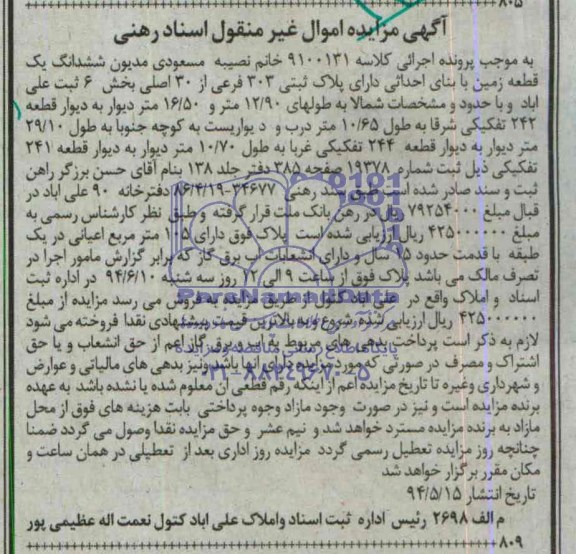 ۸۰۵
آگهی مزایده اموال غیر منقول اسناد رهنی
به موجب پرونده اجرائی کلاسه ۹۱۰۰۱۳۱ خانم نصیبه مسعودی مدیون ششدانگ یک
قطعه زمین با بنای احداثی دارای پلاک ثبتی ۳۰۳ فرعی از ۳۰ اصلی بخش ۶ ثبت علی
اباد و با حدود و مشخصات شمالا به طولهای ۱۲/۹۰ متر و ۱۶/۵۰ متر دیوار به دیوار قطعه
۲۴۲ تفکیکی شرقا به طول ۱۰/۶۵ متر درب و د یواریست به کوچه جنوبا به طول ۲۹/۱۰
متر دیوار به دیوار قطعه ۲۴۴ تفکیکی غربا به طول ۱۰/۷۰ متر دیوار به دیوار قطعه ۲۴۱
تفکیکی ذیل ثبت شماره ۱۹۳۷۸ صفحه ۳۸۸ دفتر جلد ۱۳۸ بنام آقای حسن برزگر راهن
ثبت و سند صادر شده است طبق سند رهنی ۳۴۶۷۷-۸۶/۴/۱۹ دفترخانه ۹۰ علی اباد در
قبال مبلغ ۷۹۲۵۴۰۰۰ ریال در رهن بانک ملت قرار گرفته و طبق نظر کارشناس رسمی به
مبلغ ۴۲۵۰۰۰۰۰۰ ریال ارزیابی شده است پلاک فوق دارای ۱۰۵ متر مربع اعیانی در یک
طبقه با قدمت حدود ۱۵ سال و دارای انشعابات ب برق گاز که برابر گزارش مامور اجرا در
تصرف مالک می باشد پلاک فوق از ساعت ۹ الی ۱۲ روز سه شنبه ۹۴/۶/۱۰ در اداره ثبت
اسناد و املاک واقع در علی اباد کتول از طریق مزایده به فروش می رسد مزایده از مبلغ
۴۲۵۰۰۰۰۰۰ ریال ارزیابی شده شروع و به بالاترین قیمت پیشنهادی نقدا فروخته می شود
لازم به ذکر است پرداخت بدهی های مربوط به آب و برق گاز اعم از حق انشعاب و یا حق
اشتراک و مصرف در صورتی که مورد مزایده دارای آنها باشد ونیز بدهی های مالیاتی و عوارض
و شهرداری وغیره تا تاریخ مزایده اعم از اینکه رقم قطعی آن معلوم شده یا نشده باشد به عهده
برنده مزایده است و نیز در صورت وجود مازاد وجوه پرداختی بابت هزینه های فوق از محل
مازاد به برنده مزایده مسترد خواهد شد و نیم عشر و حق مزایده نقدا وصول می گردد ضمنا
چنانچه روز مزایده تعطیل رسمی گردد مزایده روز اداری بعد از تعطیلی در همان ساعت و
مکان مقرر برگزار خواهد شد
تاریخ انتشار ۹۴/۵/۱۵
م الف ۲۶۹۸ رئیس اداره ثبت اسناد واملاک علی اباد کتول نعمت اله عظیمی پور
۸۰۹